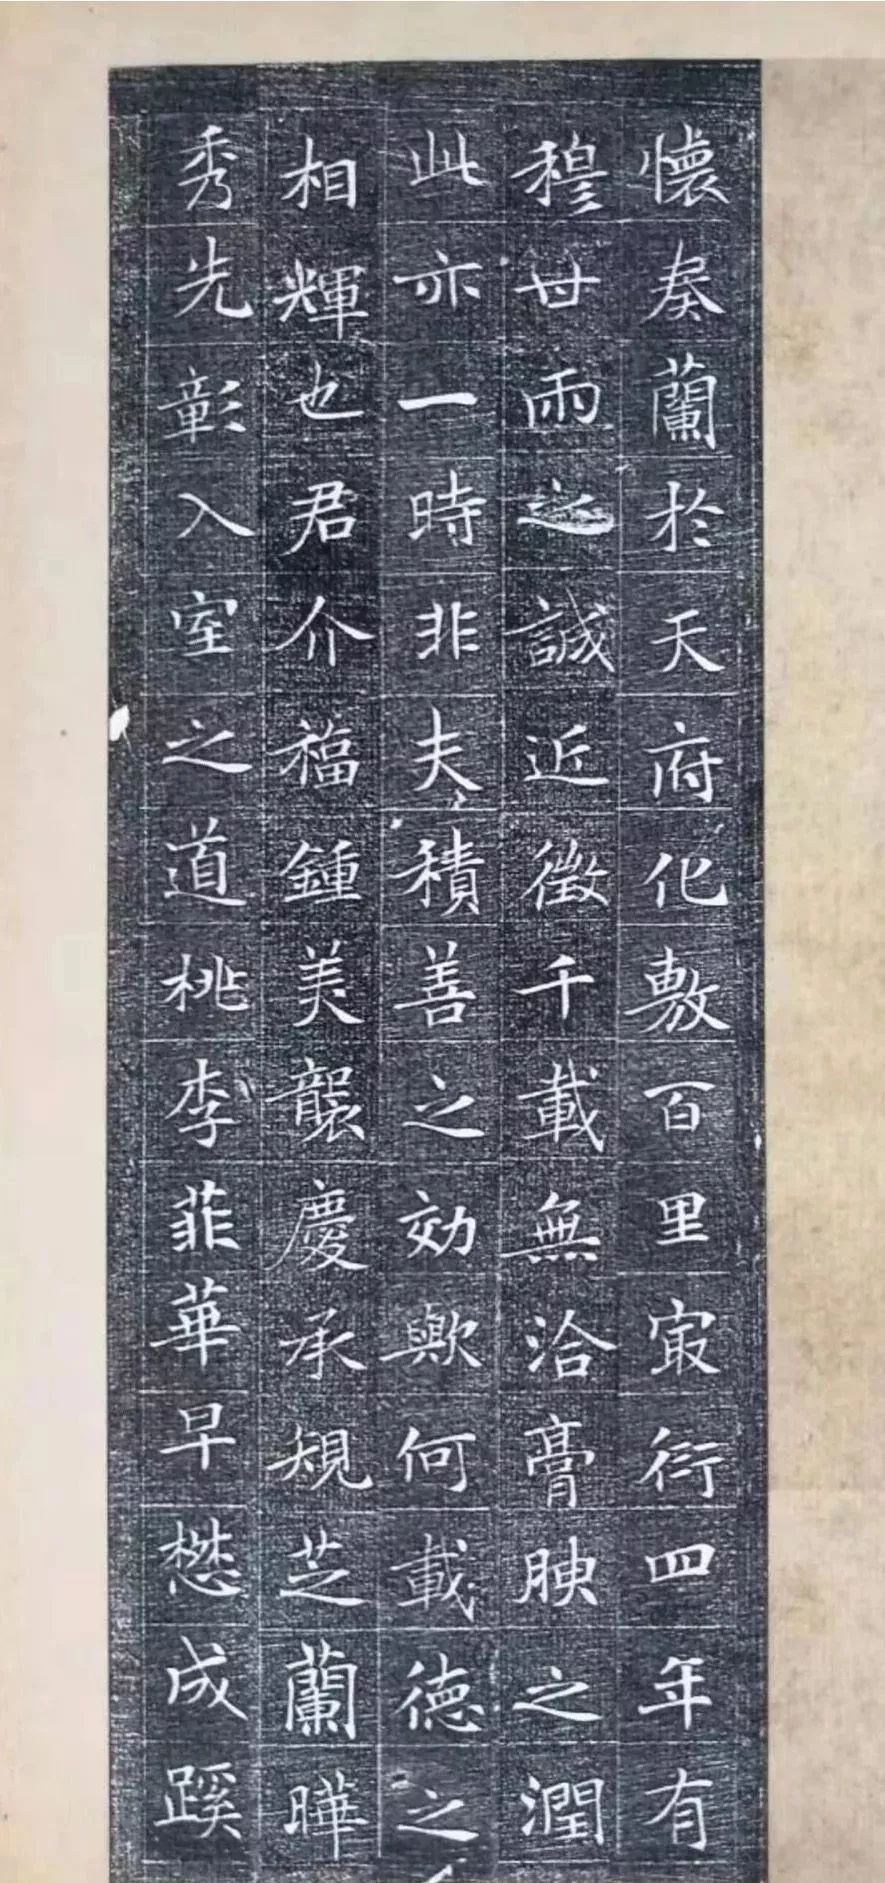 懷奏蘭於天府化敷百里㝡衍四年有
穆廿雨之誠近徵千載無洽膏腴之潤
此亦一時非夫積善之効歟何載德之
相輝也君介福鍾美襲慶承規芝蘭曄
秀先彰入室之道桃李菲華早懋成蹊